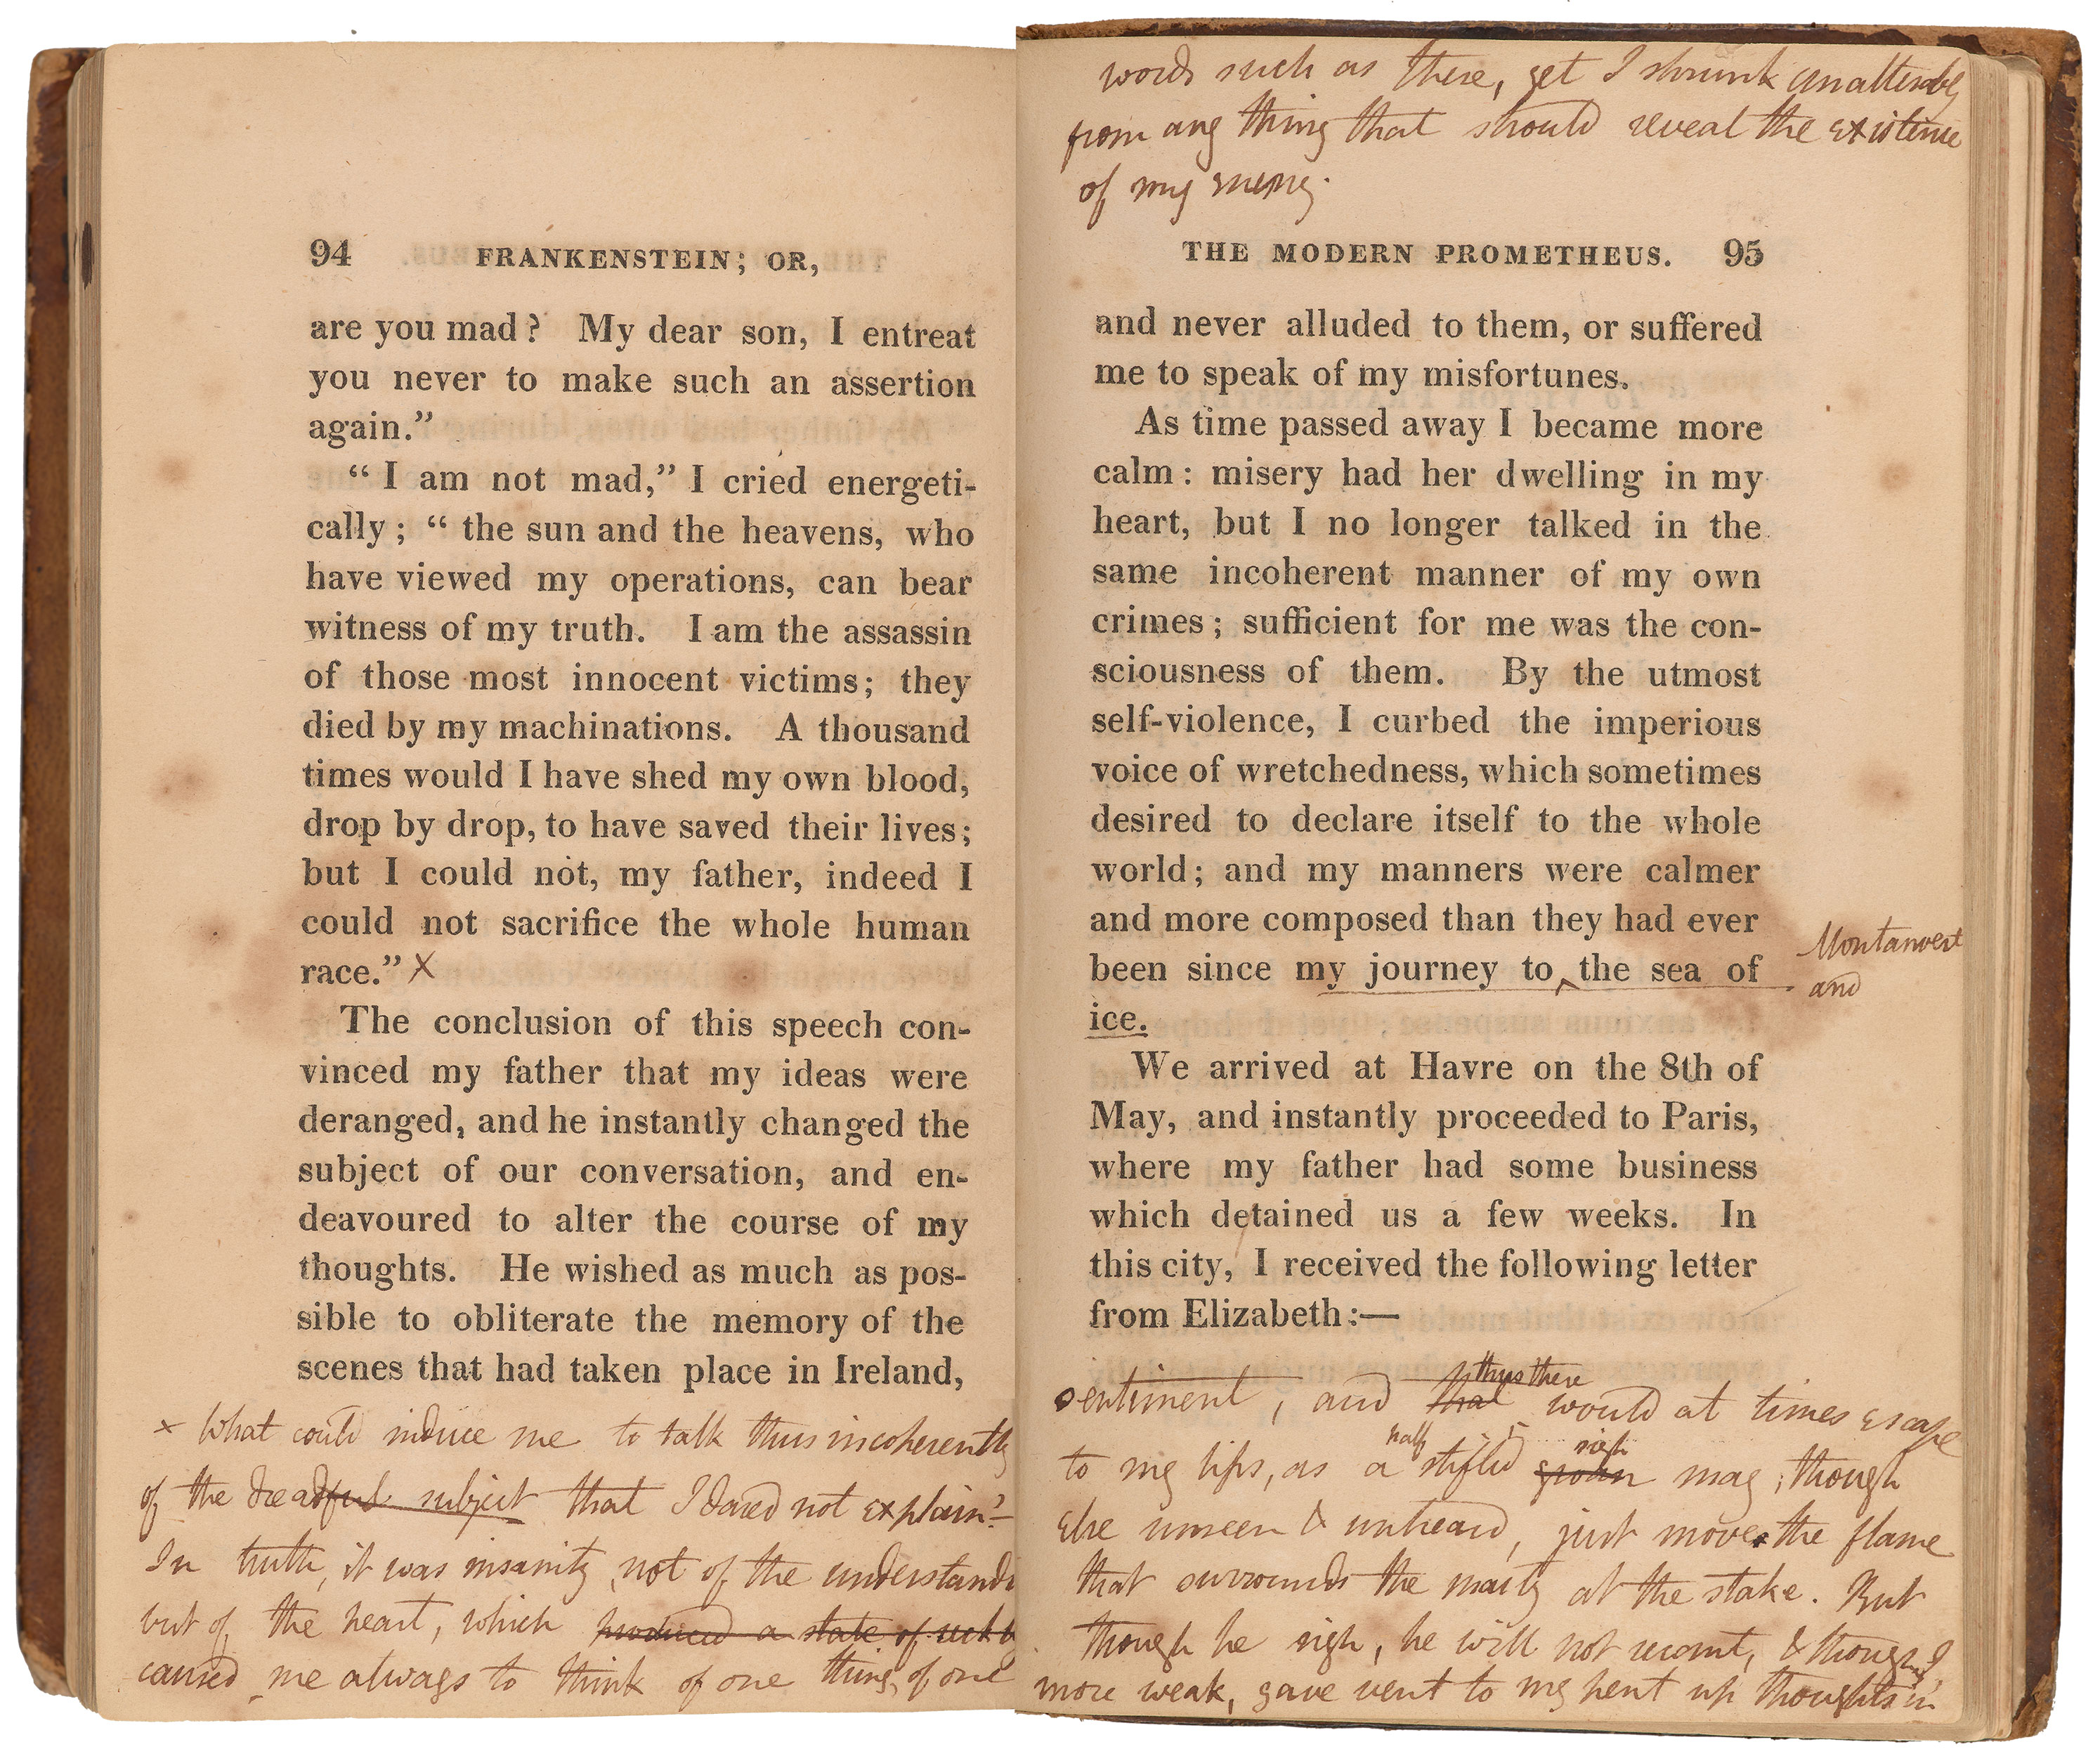 94 FRANKENSTEIN; OR,
are you mad? My dear son, I entreat
you never to make such an assertion
again.”
“ I am not mad,” I cried energeti-
cally; “ the sun and the heavens, who
have viewed my operations, can bear
witness of my truth. I am the assassin
of those most innocent victims; they
died by my machinations. A thousand
times would I have shed my own blood,
drop by drop, to have saved their lives;
but I could not, my father, indeed I
could not sacrifice the whole human
race.” X
The conclusion of this speech con-
vinced my father that my ideas were
deranged, and he instantly changed the
subject of our conversation, and en-
deavoured to alter the course of my
thoughts. He wished as much as pos-
sible to obliterate the memory of the
scenes that had taken place in Ireland,
x What could induce me to talk thus incoherently
of the dreadful subject that I dared not explain?—
In truth, it was insanity, not of the understandi
but of the heart, which produced a state of
caused me always to think of one thing, of one
words such as these, yet I shrunk unalterably
from any thing that should reveal the existence
of my enemy.
THE MODERN PROMETHEUS. 95
and never alluded to them, or suffered
me to speak of my misfortunes.
As time passed away I became more
calm: misery had her dwelling in my
heart, but I no longer talked in the
same incoherent manner of my own
crimes; sufficient for me was the con-
sciousness of them. By the utmost
self-violence, I curbed the imperious
voice of wretchedness, which sometimes
desired to declare itself to the whole
world; and my manners were calmer
and more composed than they had ever
been since my journey to ‸ the sea of
Montanvert
and
ice.
We arrived at Havre on the 8th of
May, and instantly proceeded to Paris,
where my father had some business
which detained us a few weeks. In
this city, I received the following letter
from Elizabeth:—
thus there
sentiment, and that would at times escape
half sigh
to my lips, as a stifled groan may, though
else unseen & unheard, just move the flame
that surrounds the martyr at the stake. But
though he sigh, he will not recant, & though I
more weak, gave vent to my pent up thoughts in